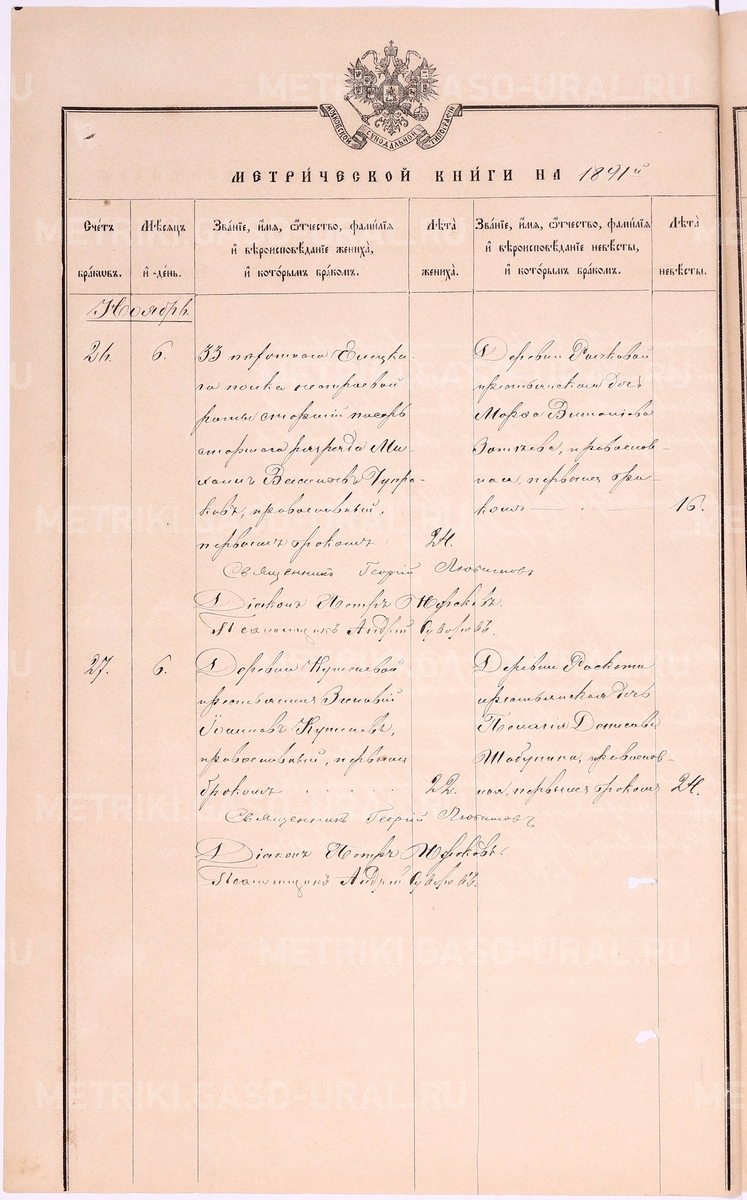 МОСКОВСКОЙ СѴНОДАЛЬНОЙ ТИПОГРАФІИ
МЕТРИ́ЧЕСКОЙ КНИ́ГИ НА 1891й
Сче́тъ
бра́кωвъ.
Мѣ́сяцъ
и҆ де́нь.
Зва́нїе, и҆́мя, ѻ҆́тчество, фами́лїя
и҆ вѣроисповѣ́данїе жениха̀,
и҆ кото́рымъ бра́комъ.
Лѣ́та
жениха̀.
Зва́нїе, и҆́мя, ѻ҆́тчество, фами́лїя
и҆ вѣроисповѣ́данїе невѣ́сты,
и҆ кото́рымъ бра́комъ.
Лѣ́та
невѣ́сты.
Ноябрь
26.
6.
33 пѣхотнаго Елецка-
го полка
роты старшій писарь
старшаго разряда Ми-
хаилъ Васильевъ Чупра-
ковъ, православный,
первымъ бракомъ
24.
Деревни
крестьянская дочь
Марѳа
православ-
ная, первымъ бра-
комъ
16.
Священникъ Георгій Любимовъ
Діаконъ Петръ
Псаломщикъ Андрій Суворовъ.
27.
6.
Деревни Кутеневой
крестьянинъ Зиновій
Іоанновъ Кутеневъ,
православный, первымъ
бракомъ
22.
Деревни
крестьянская дочь
Пелагія Денисова
Шабунина, православ-
ная, первымъ бракомъ
24.
Священникъ Георгій Любимовъ
Діаконъ Петръ
Псаломщикъ Андрій Суворовъ.
METRIKI.GASO-URAL.RU